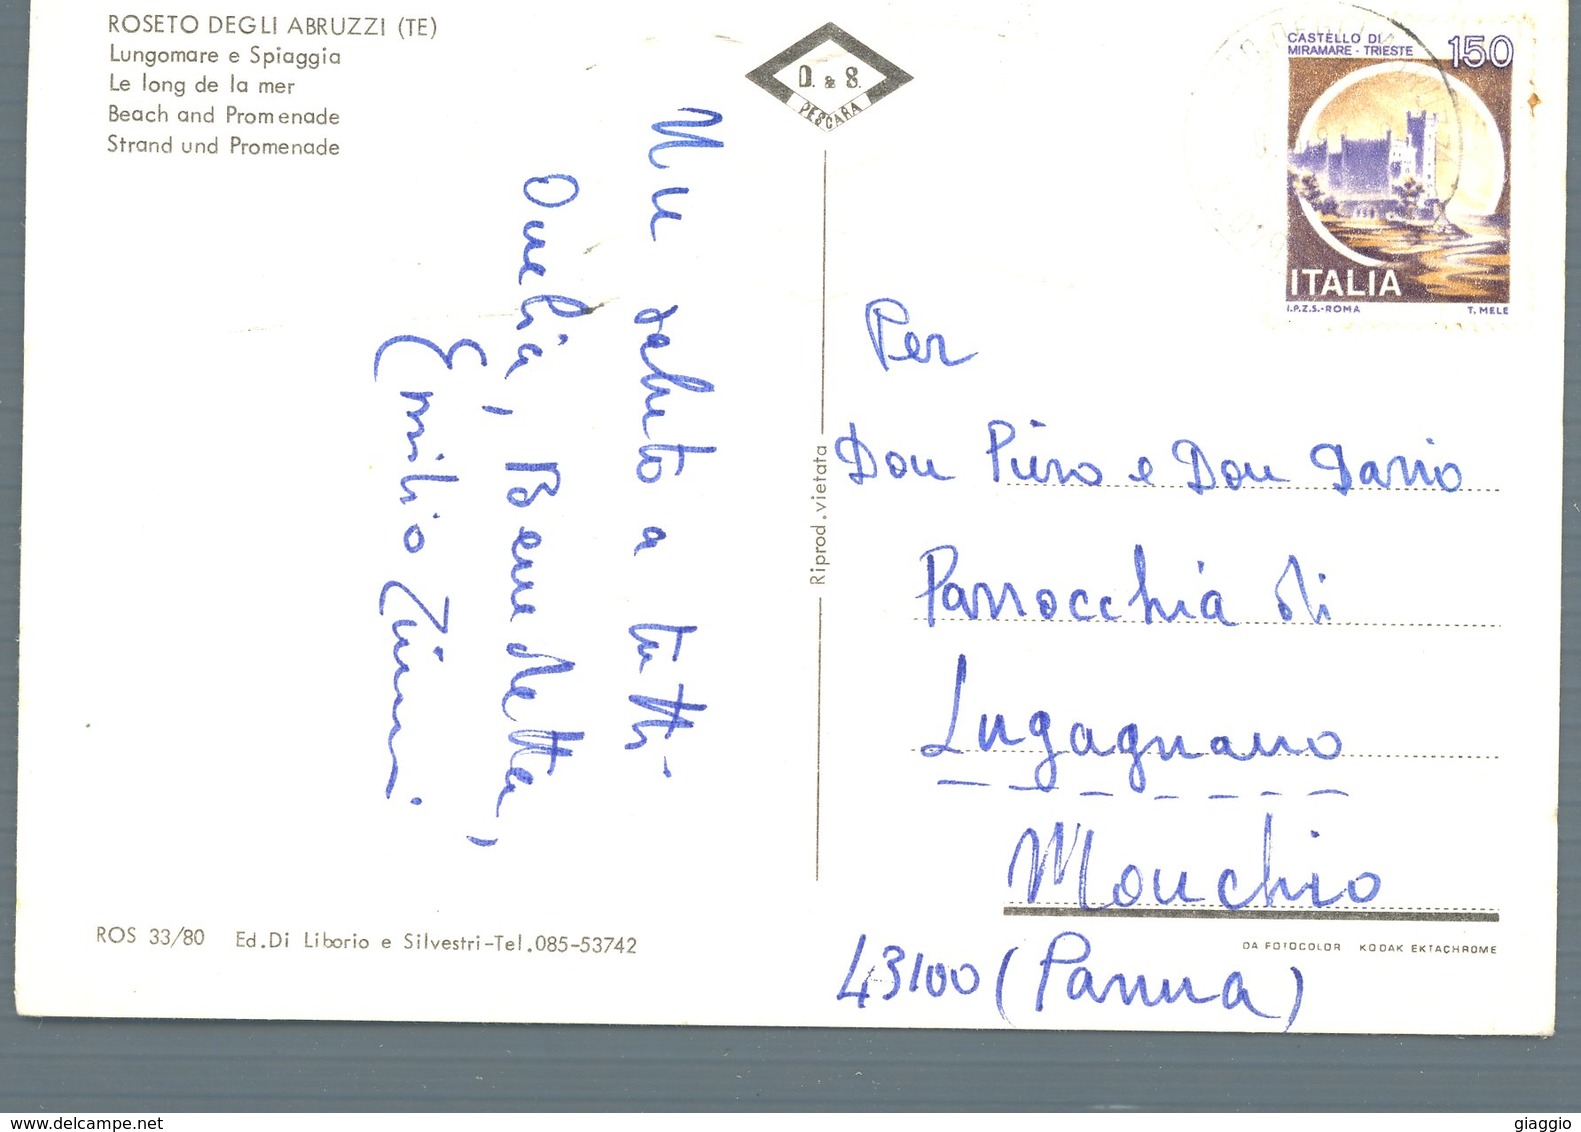 ROSETO DEGLI ABRUZZI (TE)
Lungomare e Spiaggia
Le long de la mer
Beach and Promenade
Strand und Promenade
D. & S.
PESCARA
CASTELLO DI
MIRAMARE - TRIESTE
150
ITALIA
I.P.Z.S.-ROMA T. MELE
Un saluto a tutti
Ornelia, Benedetta,
Emilio Zini
Riprod. vietata
Per
Don Piero e Don Dario
Parrocchia di
Lugagnano
Monchio
43100 (Parma)
ROS 33/80 Ed. Di Liborio e Silvestri-Tel. 085-53742
DA FOTOCOLOR KODAK EKTACHROME
www.delcampe.net
giaggio